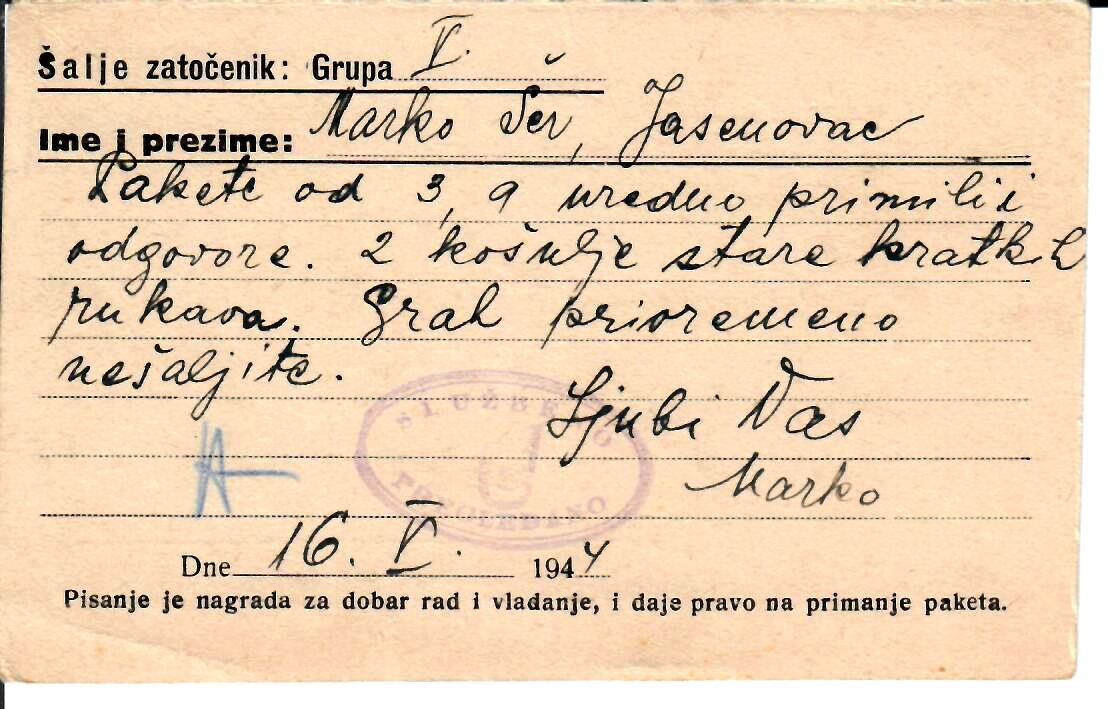 Šalje zatočenik: Grupa V.
Ime i prezime: Marko Šer, Jasenovac
Pakete od 3, 9 uredno primili i
odgovore. 2 košulje stare kratkih
rukava. Grah privremeno
nešaljite.
Ljubi Vas
Marko
SLUŽBENO
U
PREGLEDANO
Dne 16. V. 1944
Pisanje je nagrada za dobar rad i vladanje, i daje pravo na primanje paketa.